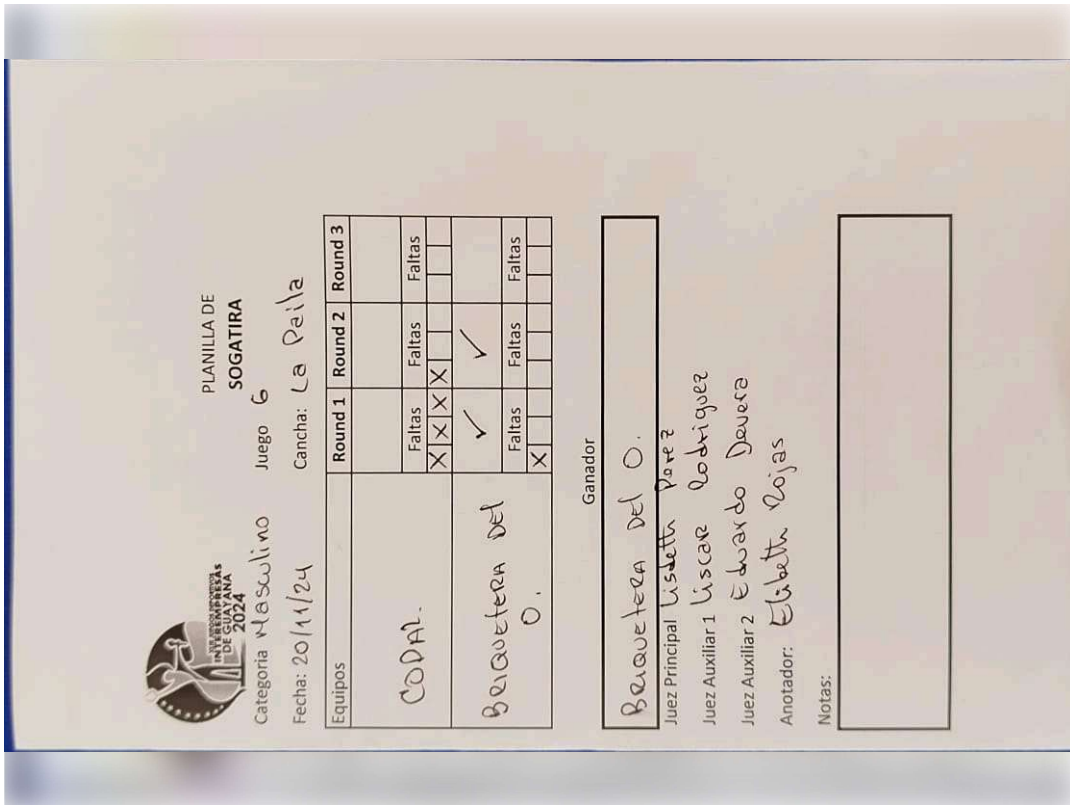 PLANILLA DE
SOGATIRA
INTEREMPRESAS
DE GUAYANA
2024
Categoria Masculino Juego 6
Fecha: 20/11/24 Cancha: La Paila
Equipos Round 1 Round 2 Round 3
CODAL.
Faltas Faltas Faltas
X X X X
BRIQUETERA DEL O.
✓ ✓
Faltas Faltas Faltas
X
Ganador
BRIQUETERA DEL O.
Juez Principal Lisdeth Perez
Juez Auxiliar 1 Liscar Rodriguez
Juez Auxiliar 2 Eduardo Devera
Anotador: Elibeth Rojas
Notas: